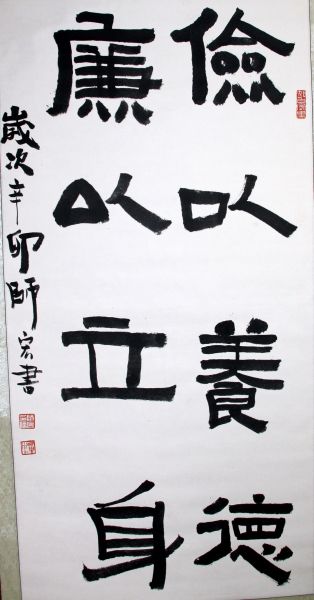 儉以養德
廉以立身
歲次辛卯師宏書